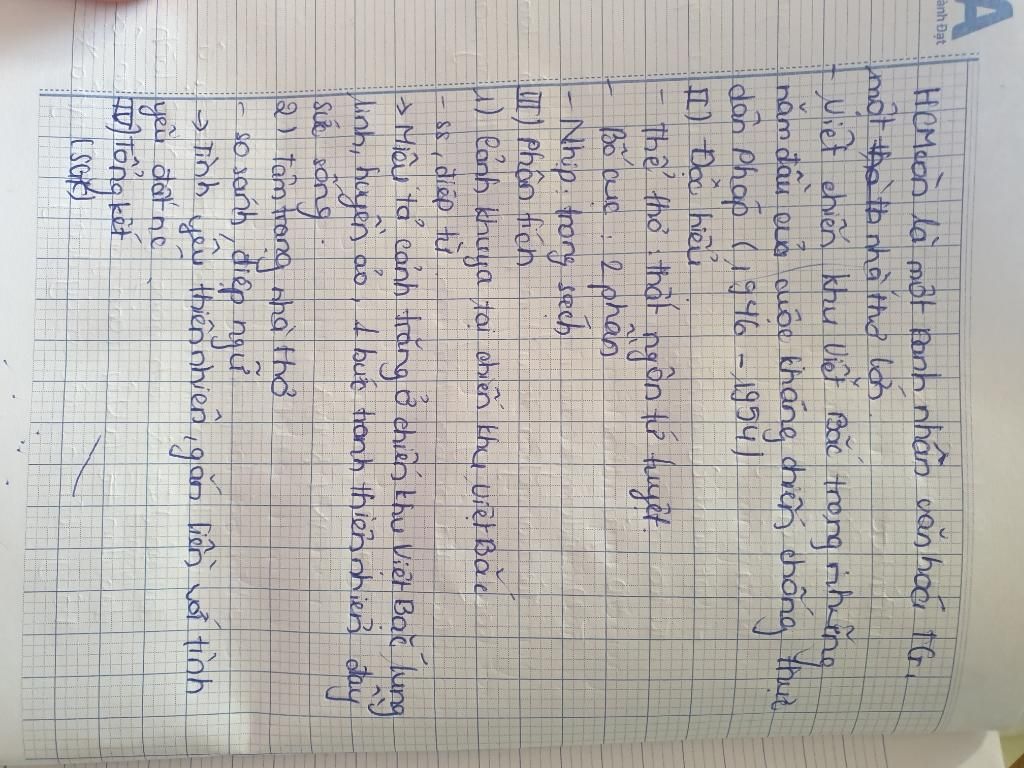 A
ành Đạt
HCMuôn là một danh nhân văn hoá TG,
một nhà thơ lớn.
- Viết chiến khu Việt Bắc trong những
năm đầu của cuộc kháng chiến chống thực
dân Pháp (1946 - 1954)
II) Đọc hiểu
- Thể thơ: thất ngôn tứ tuyệt
- Bố cục: 2 phần
- Nhịp: trong sách
III) Phân tích
1) Cảnh khuya tại chiến khu Việt Bắc
- ss, điệp từ
→ Miêu tả cảnh trăng ở chiến khu Việt Bắc lung
linh, huyền ảo, 1 bức tranh thiên nhiên đầy
sức sống.
2) Tâm trạng nhà thơ
- so sánh, điệp ngữ
→ Tình yêu thiên nhiên, gắn liền với tình
yêu đất nc
IV) Tổng kết
(SGK)